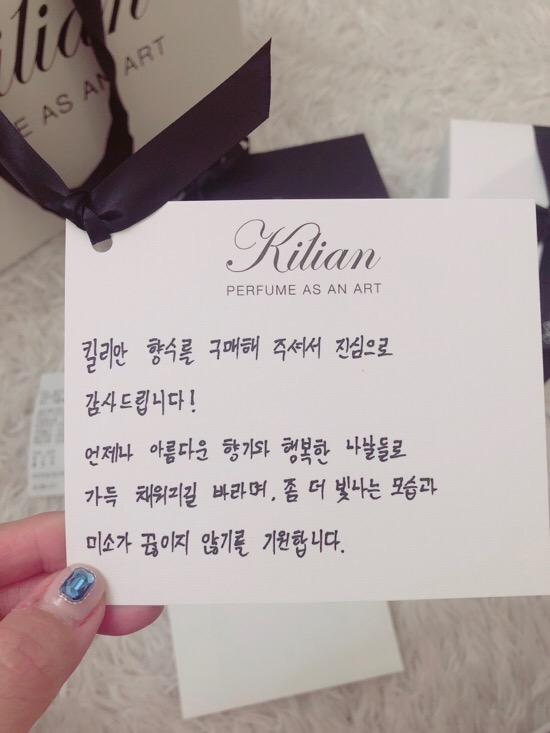 Kilian
PERFUME AS AN ART
Kilian
PERFUME AS AN ART
킬리안 향수를 구매해 주셔서 진심으로
감사드립니다!
언제나 아름다운 향기와 행복한 나날들로
가득 채워지길 바라며, 좀 더 빛나는 모습과
미소가 끊이지 않기를 기원합니다.